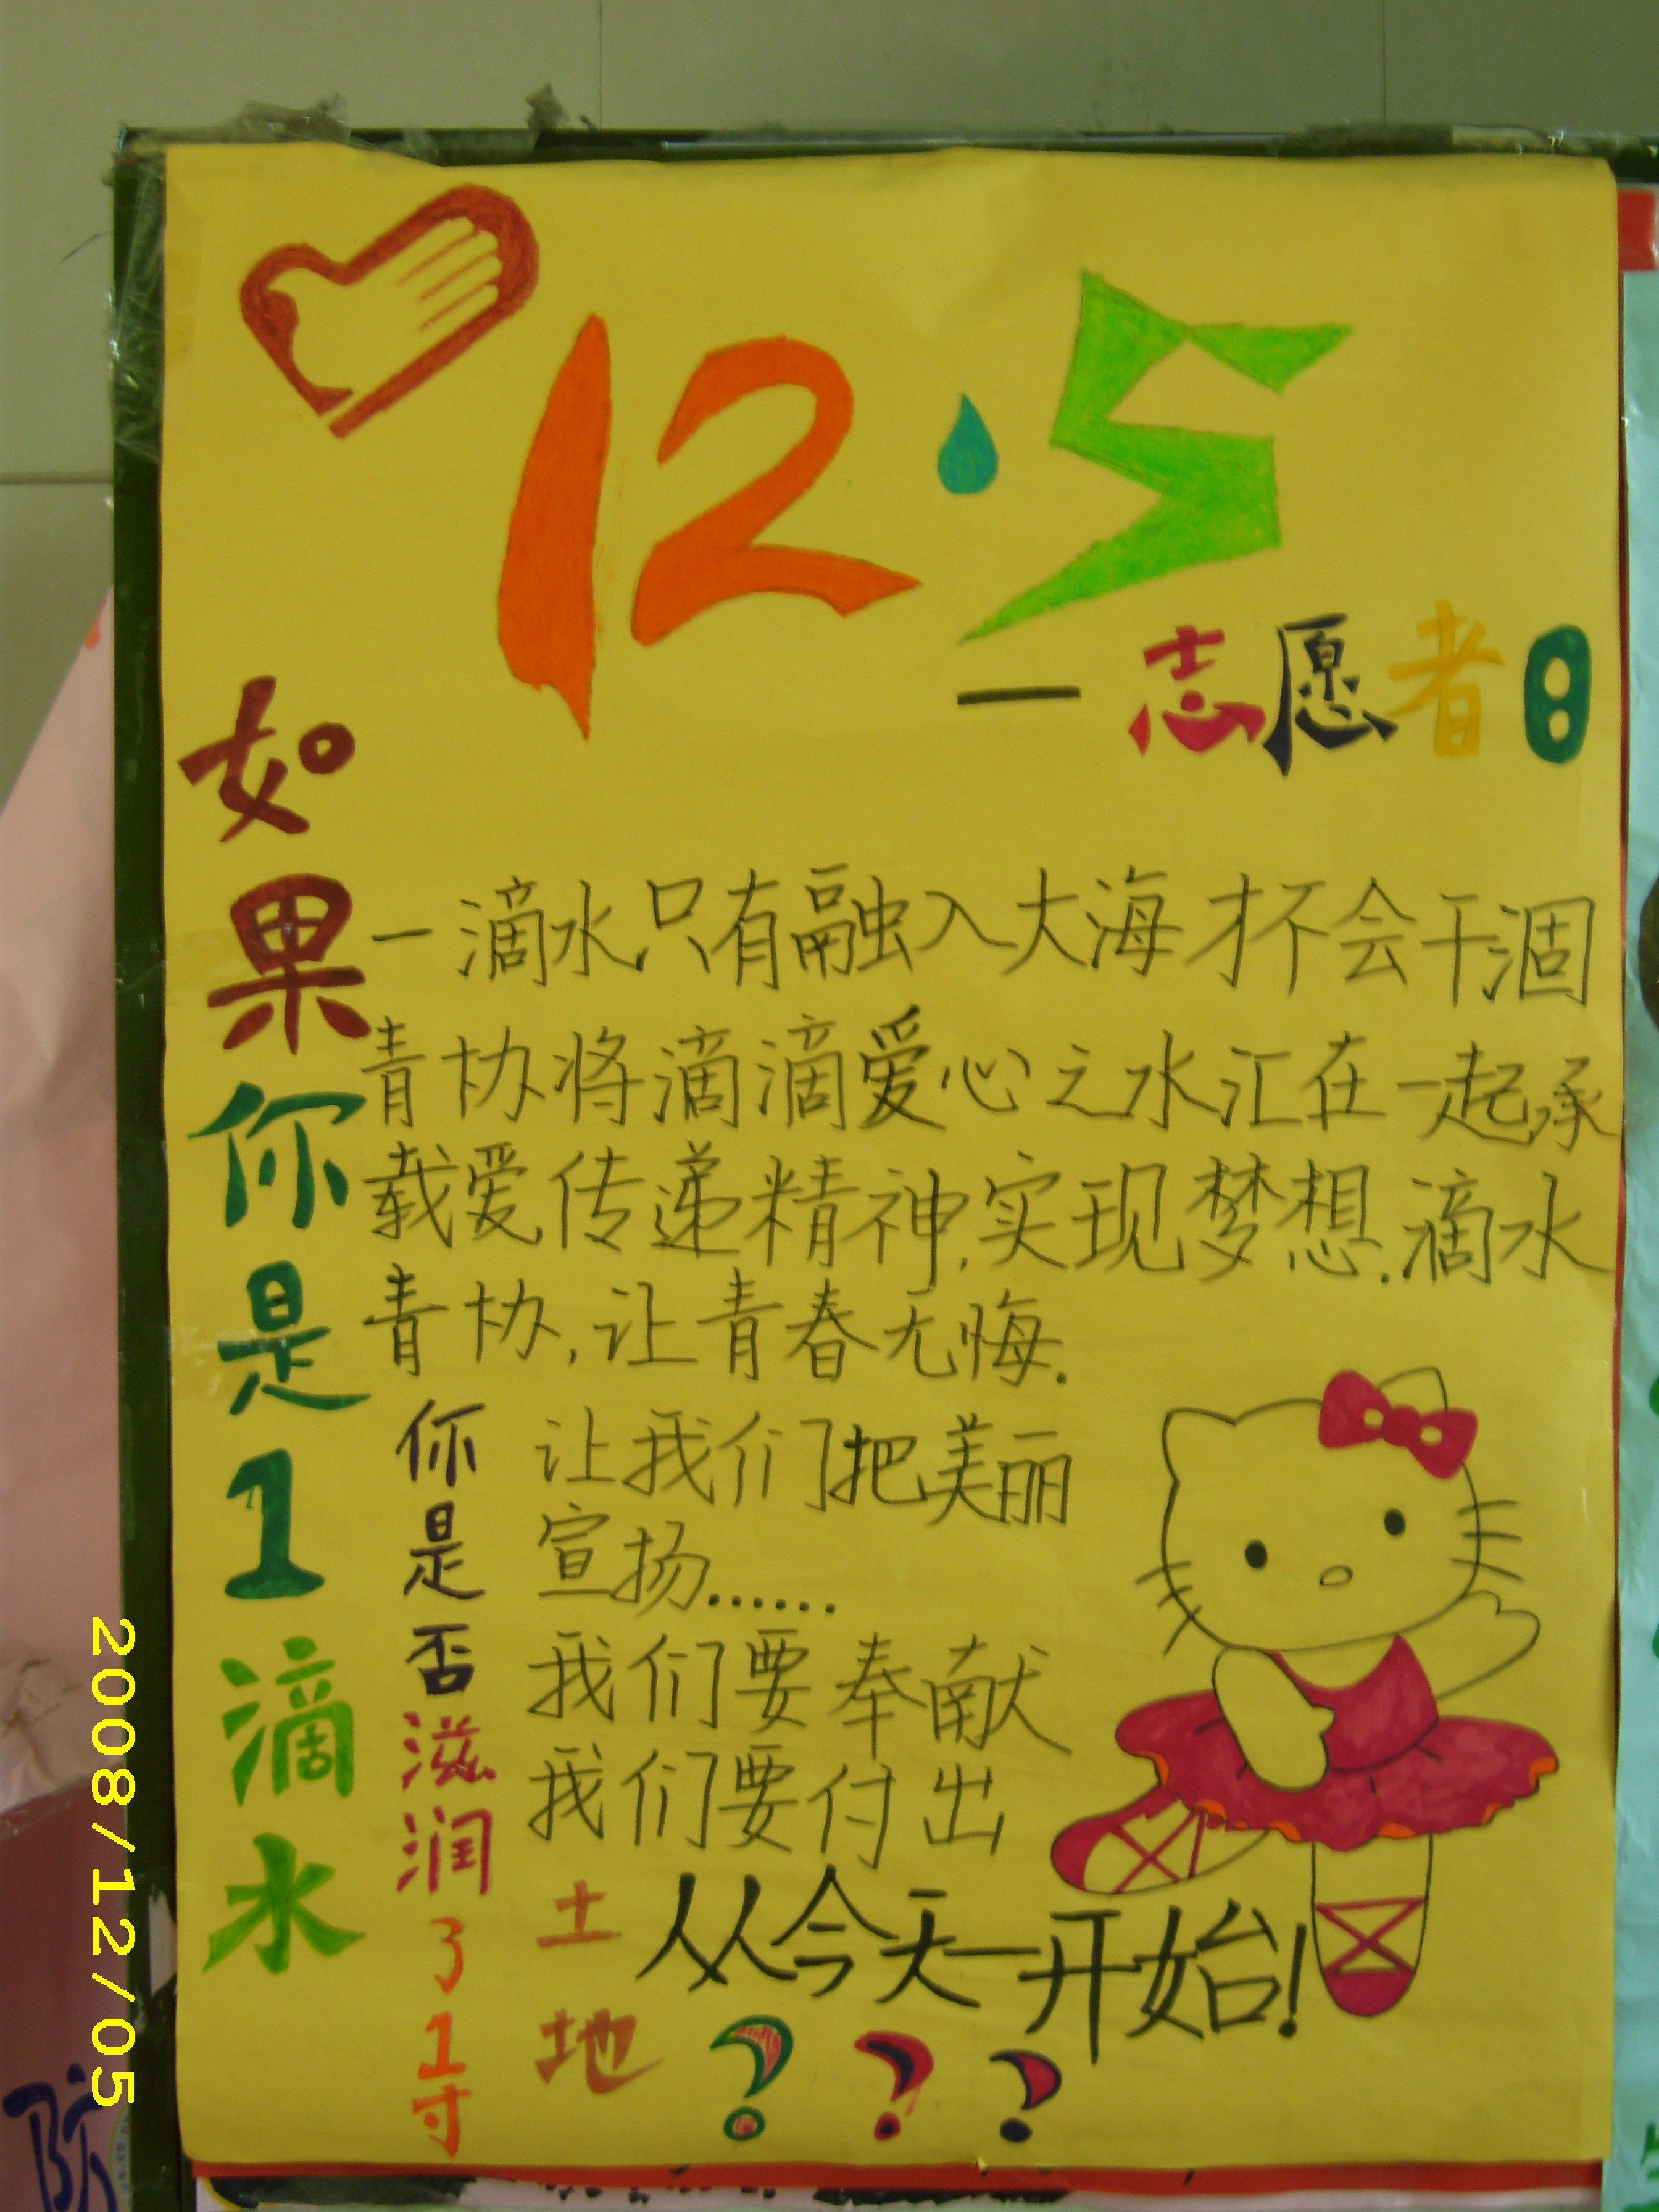 12·5
—志愿者日
如果你是1滴水
一滴水只有融入大海才不会干涸
青协将滴滴爱心之水汇在一起承
载爱传递精神,实现梦想.滴水
青协,让青春无悔.
你是否滋润了1寸
土地???
让我们把美丽
宣扬......
我们要奉献
我们要付出
从今天开始!
2008/12/05